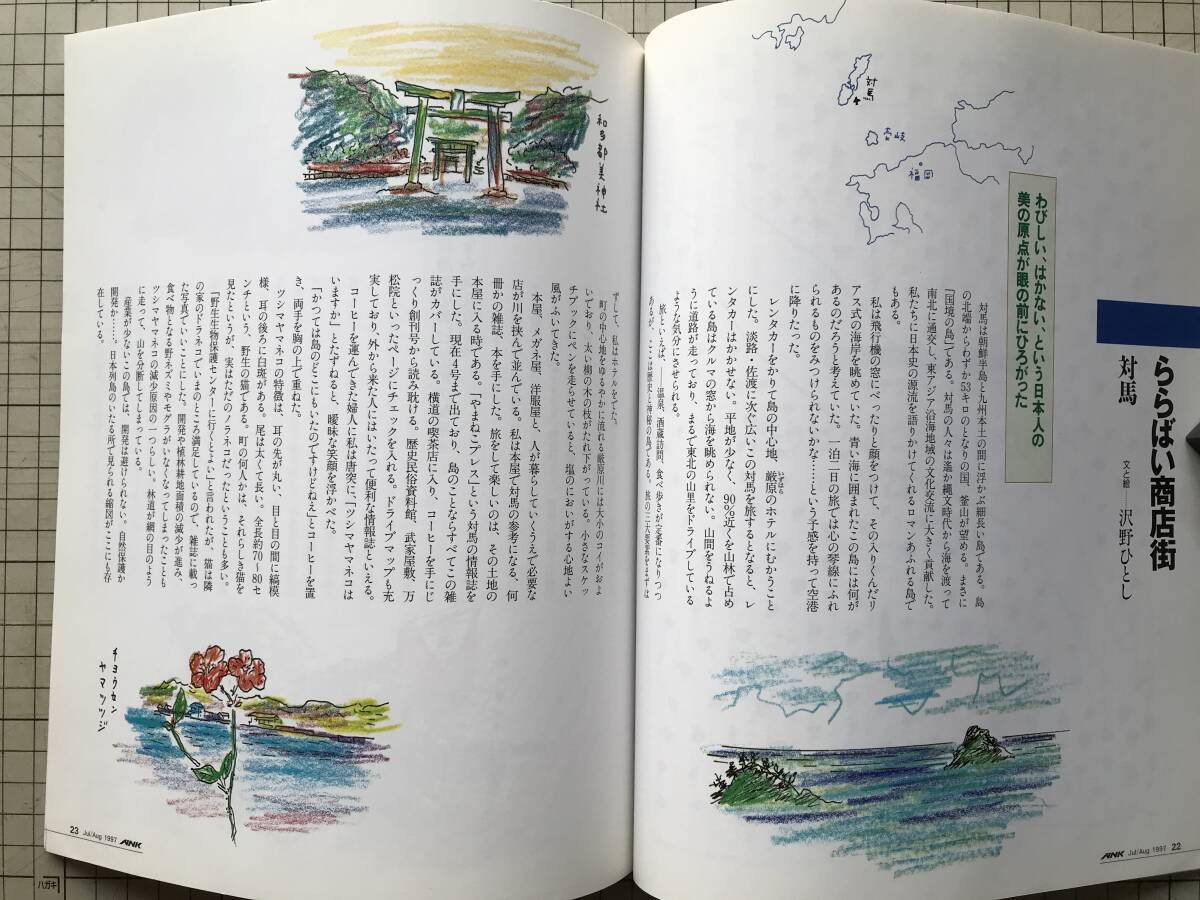 ららばい商店街
対馬 文と絵 沢野ひとし
わびしい、はかない、という日本人の
美の原点が眼の前にひろがった
対馬
壱岐
福岡
対馬は朝鮮半島と九州本土の間に浮かぶ細長い島である。島
の北端からわずか53キロのとなりの国、釜山が望める。まさに
「国境の島」である。対馬の人々は遙か縄文時代から海を渡って
南北に通交し、東アジア沿海地域の文化交流に大きく貢献した。
私たちに日本史の源流を語りかけてくれるロマンあふれる島で
もある。
私は飛行機の窓にぺったりと顔をつけて、その入りくんだリ
アス式の海岸を眺めていた。青い海に囲まれたこの島には何が
あるのだろうと考えていた。一泊二日の旅では心の琴線にふれ
られるものをみつけられないかな……という予感を持って空港
に降りたった。
レンタカーをかりて島の中心地、厳原のホテルにむかうこと
いずはら
にした。淡路・佐渡に次ぐ広いこの対馬を旅するとなると、レ
ンタカーはかかせない。平地が少なく、90%近くを山林で占め
ている島はクルマの窓から海を眺められない。山間をうねるよ
うに道路が走っており、まるで東北の山里をドライブしている
ような気分にさせられる。
旅といえば、――温泉、酒蔵訪問、食べ歩きが定番になりつつ
あるが、ここは歴史と神秘の島である。旅の三大要素をまずは
ずして、私はホテルをでた。
町の中心地をゆるやかに流れる厳原川には大小のコイがおよ
いでおり、太い柳の木の枝がたれ下がっている。小さなスケッ
チブックにペンを走らせていると、塩のにおいがする心地よい
風がふいてきた。
本屋、メガネ屋、洋服屋と、人が暮らしていくうえで必要な
店が川を挟んで並んでいる。私は本屋で対馬の参考になる、何
冊かの雑誌、本を手にした。旅をして楽しいのは、その土地の
本屋に入る時である。「やまねこプレス」という対馬の情報誌を
手にした。現在4号まで出ており、島のことならすべてこの雑
誌がカバーしている。横道の喫茶店に入り、コーヒーを手にじ
っくり創刊号から読み耽ける。歴史民俗資料館、武家屋敷、万
松院といったページにチェックを入れる。ドライブマップも充
実しており、外から来た人にはいたって便利な情報誌といえる。
コーヒーを運んできた婦人に私は唐突に、「ツシマヤマネコは
いますか」とたずねると、曖昧な笑顔を浮かべた。
「かつては島のどこにもいたのですけどねえ」とコーヒーを置
き、両手を胸の上で重ねた。
ツシマヤマネコの特徴は、耳の先が丸い、目と目の間に縞模
様、耳の後ろに白斑がある。尾は太くて長い。全長約70～80セ
ンチという、野生の猫である。町の何人かは、それらしき猫を
見たというが、実はただのノラネコだったということも多い。
「野生生物保護センターに行くとよい」と言われたが、猫は隣
の家のドラネコでいまのところ満足しているので、雑誌に載っ
た写真でいいことにした。開発や植林耕地面積の減少が進み、
食べ物となる野ネズミやモグラがいなくなってしまったことも
ツシマヤマネコの減少原因の一つらしい。林道が網の目のよう
に走って、山を分断してしまっている。
産業が少ないこの島では、開発は避けられない。自然保護か
開発か……。日本列島のいたる所で見られる縮図がここにも存
在している。
和多都美神社
チョウセン
ヤマツツジ
23 Jul/Aug 1997 ANK
ANK Jul/Aug 1997 22
ハガキ